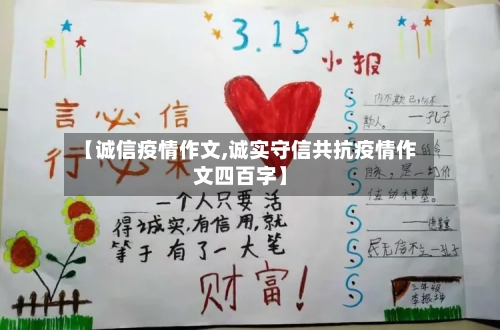 3.15
小报
言必信
行必果
【诚信疫情作文,诚实守信共抗疫情作
文四百字】
一个人只要活
得诚实,有信用,就
等于有了一大笔
财富!
内不欺己,外不
欺人。
——孔子
民无信不立—孔子
三年级